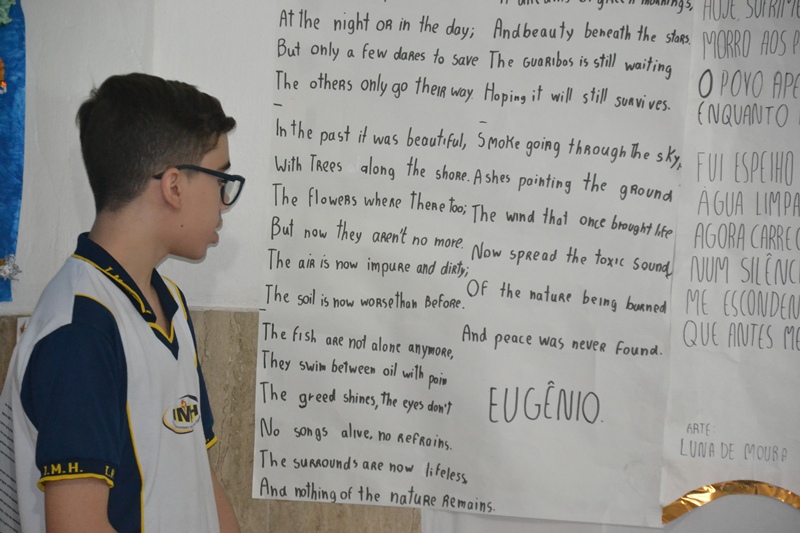 At the night or in the day;
But only a few dares to save
The others only go their way.
In the past it was beautiful,
With Trees along the shore.
The flowers where there too;
But now they aren't no more.
The air is now impure and dirty;
The soil is now worse than before.
The fish are not alone anymore,
They swim between oil with pain
The greed shines, the eyes don't
No songs alive, no refrains.
The surrounds are now lifeless
And nothing of the nature remains.
mornings,
And beauty beneath the stars.
The Guaribos is still waiting
Hoping it will still survives.
Smoke going through the sky,
Ashes painting the ground
The wind that once brought life
Now spread the toxic sound,
Of the nature being burned
And peace was never found.
EUGÊNIO.
MORRO AOS
O POVO
ENQUANTO
FUI ESPELHO
ÁGUA LIMPA
AGORA
NUM
ME
QUE ANTES
ARTE:
LUNA DE MOURA
I.M.H.